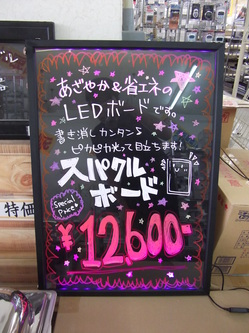 あざやか&省エネの
LEDボードです。
書き消しカンタン♪
ピカピカ光って目立ちます!
スパークル
ボード
Special
Price
¥12,600-
特価